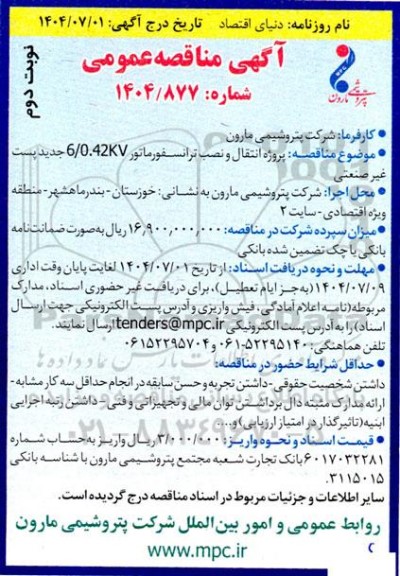 نام روزنامه: دنیای اقتصاد    تاریخ درج آگهی: ۱۴۰۴/۰۷/۰۱
نوبت دوم
آگهی مناقصه عمومی
شماره: ۱۴۰۴/۸۷۷
پتروشیمی مارون
• کارفرما: شرکت پتروشیمی مارون
• موضوع مناقصه: پروژه انتقال و نصب ترانسفورماتور 6/0.42KV جدید پست
غیر صنعتی
• محل اجرا: شرکت پتروشیمی مارون به نشانی: خوزستان - بندرماهشهر - منطقه
ویژه اقتصادی - سایت ۲
• میزان سپرده شرکت در مناقصه: ۱۶,۹۰۰,۰۰۰,۰۰۰ ریال به صورت ضمانت نامه
بانکی یا چک تضمین شده بانکی
• مهلت و نحوه دریافت اسناد: از تاریخ ۱۴۰۴/۰۷/۰۱ لغایت پایان وقت اداری
۱۴۰۴/۰۷/۰۹ (به جز ایام تعطیل)، برای دریافت غیر حضوری اسناد، مدارک
مربوطه (نامه اعلام آمادگی، فیش واریزی و آدرس پست الکترونیکی جهت ارسال
اسناد) را به آدرس پست الکترونیکی tenders@mpc.ir ارسال نمایند.
تلفن هماهنگی: ۰۶۱-۵۲۲۹۵۱۴۰ و ۰۶۱۵۲۲۹۵۷۰۴
• حداقل شرایط حضور در مناقصه:
داشتن شخصیت حقوقی - داشتن تجربه و حسن سابقه در انجام حداقل سه کار مشابه -
ارائه مدارک مثبته دال بر داشتن توان مالی و تجهیزاتی و فنی - داشتن رتبه اجرایی
ابنیه (تاثیرگذار در امتیاز ارزیابی) و...
• قیمت اسناد و نحوه واریز: ۳/۰۰۰/۰۰۰ ریال واریز به حساب شماره
۶۰۱۷۰۳۲۲۸۱ بانک تجارت شعبه مجتمع پتروشیمی مارون با شناسه بانکی
۳۱۱۵۰۱۵.
سایر اطلاعات و جزئیات مربوط در اسناد مناقصه درج گردیده است.
روابط عمومی و امور بین الملل شرکت پتروشیمی مارون
www.mpc.ir